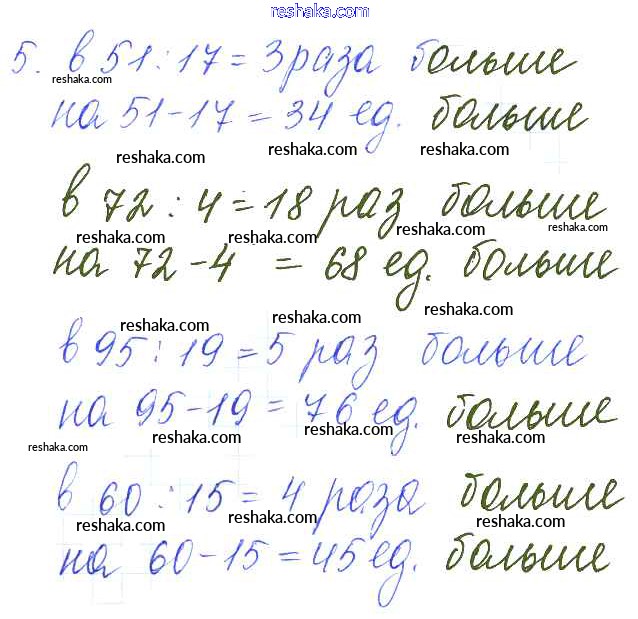 reshaka.com
5. в 51 : 17 = 3 раза больше
reshaka.com reshaka.com
на 51 - 17 = 34 ед. больше
reshaka.com reshaka.com reshaka.com
в 72 : 4 = 18 раз больше
reshaka.com reshaka.com reshaka.com reshaka.com
на 72 - 4 = 68 ед. больше
reshaka.com reshaka.com
в 95 : 19 = 5 раз больше
reshaka.com
на 95 - 19 = 76 ед. больше
reshaka.com reshaka.com reshaka.com reshaka.com
в 60 : 15 = 4 раза больше
reshaka.com reshaka.com reshaka.com
на 60 - 15 = 45 ед. больше